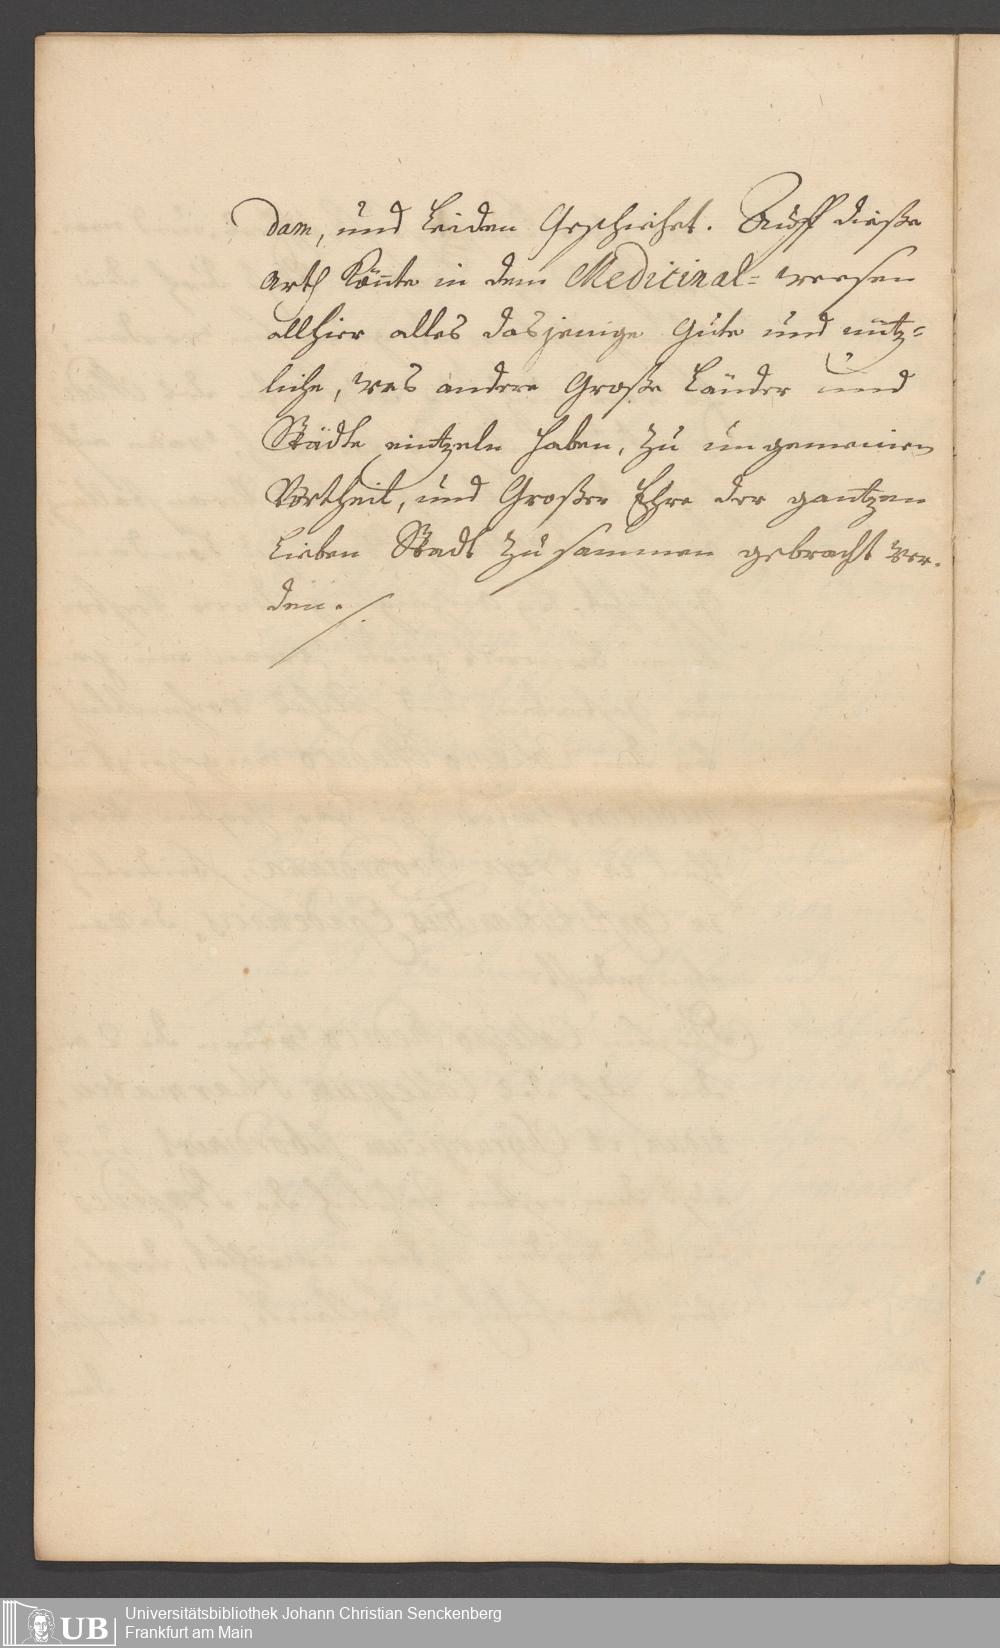 dam, und Leiden Geschiehet. Auff diese
Arth könte in dem Medicinal= weesen
allhier alles dasjenige Gute und nütz=
liche, was andere Große Länder und
Städte eintzeln haben, zu ungemeinen
Vortheil, und Großer Ehre der gantzen
Lieben Stadt zusammen gebracht wer-
den ./.
UB
Universitätsbibliothek Johann Christian Senckenberg
Frankfurt am Main